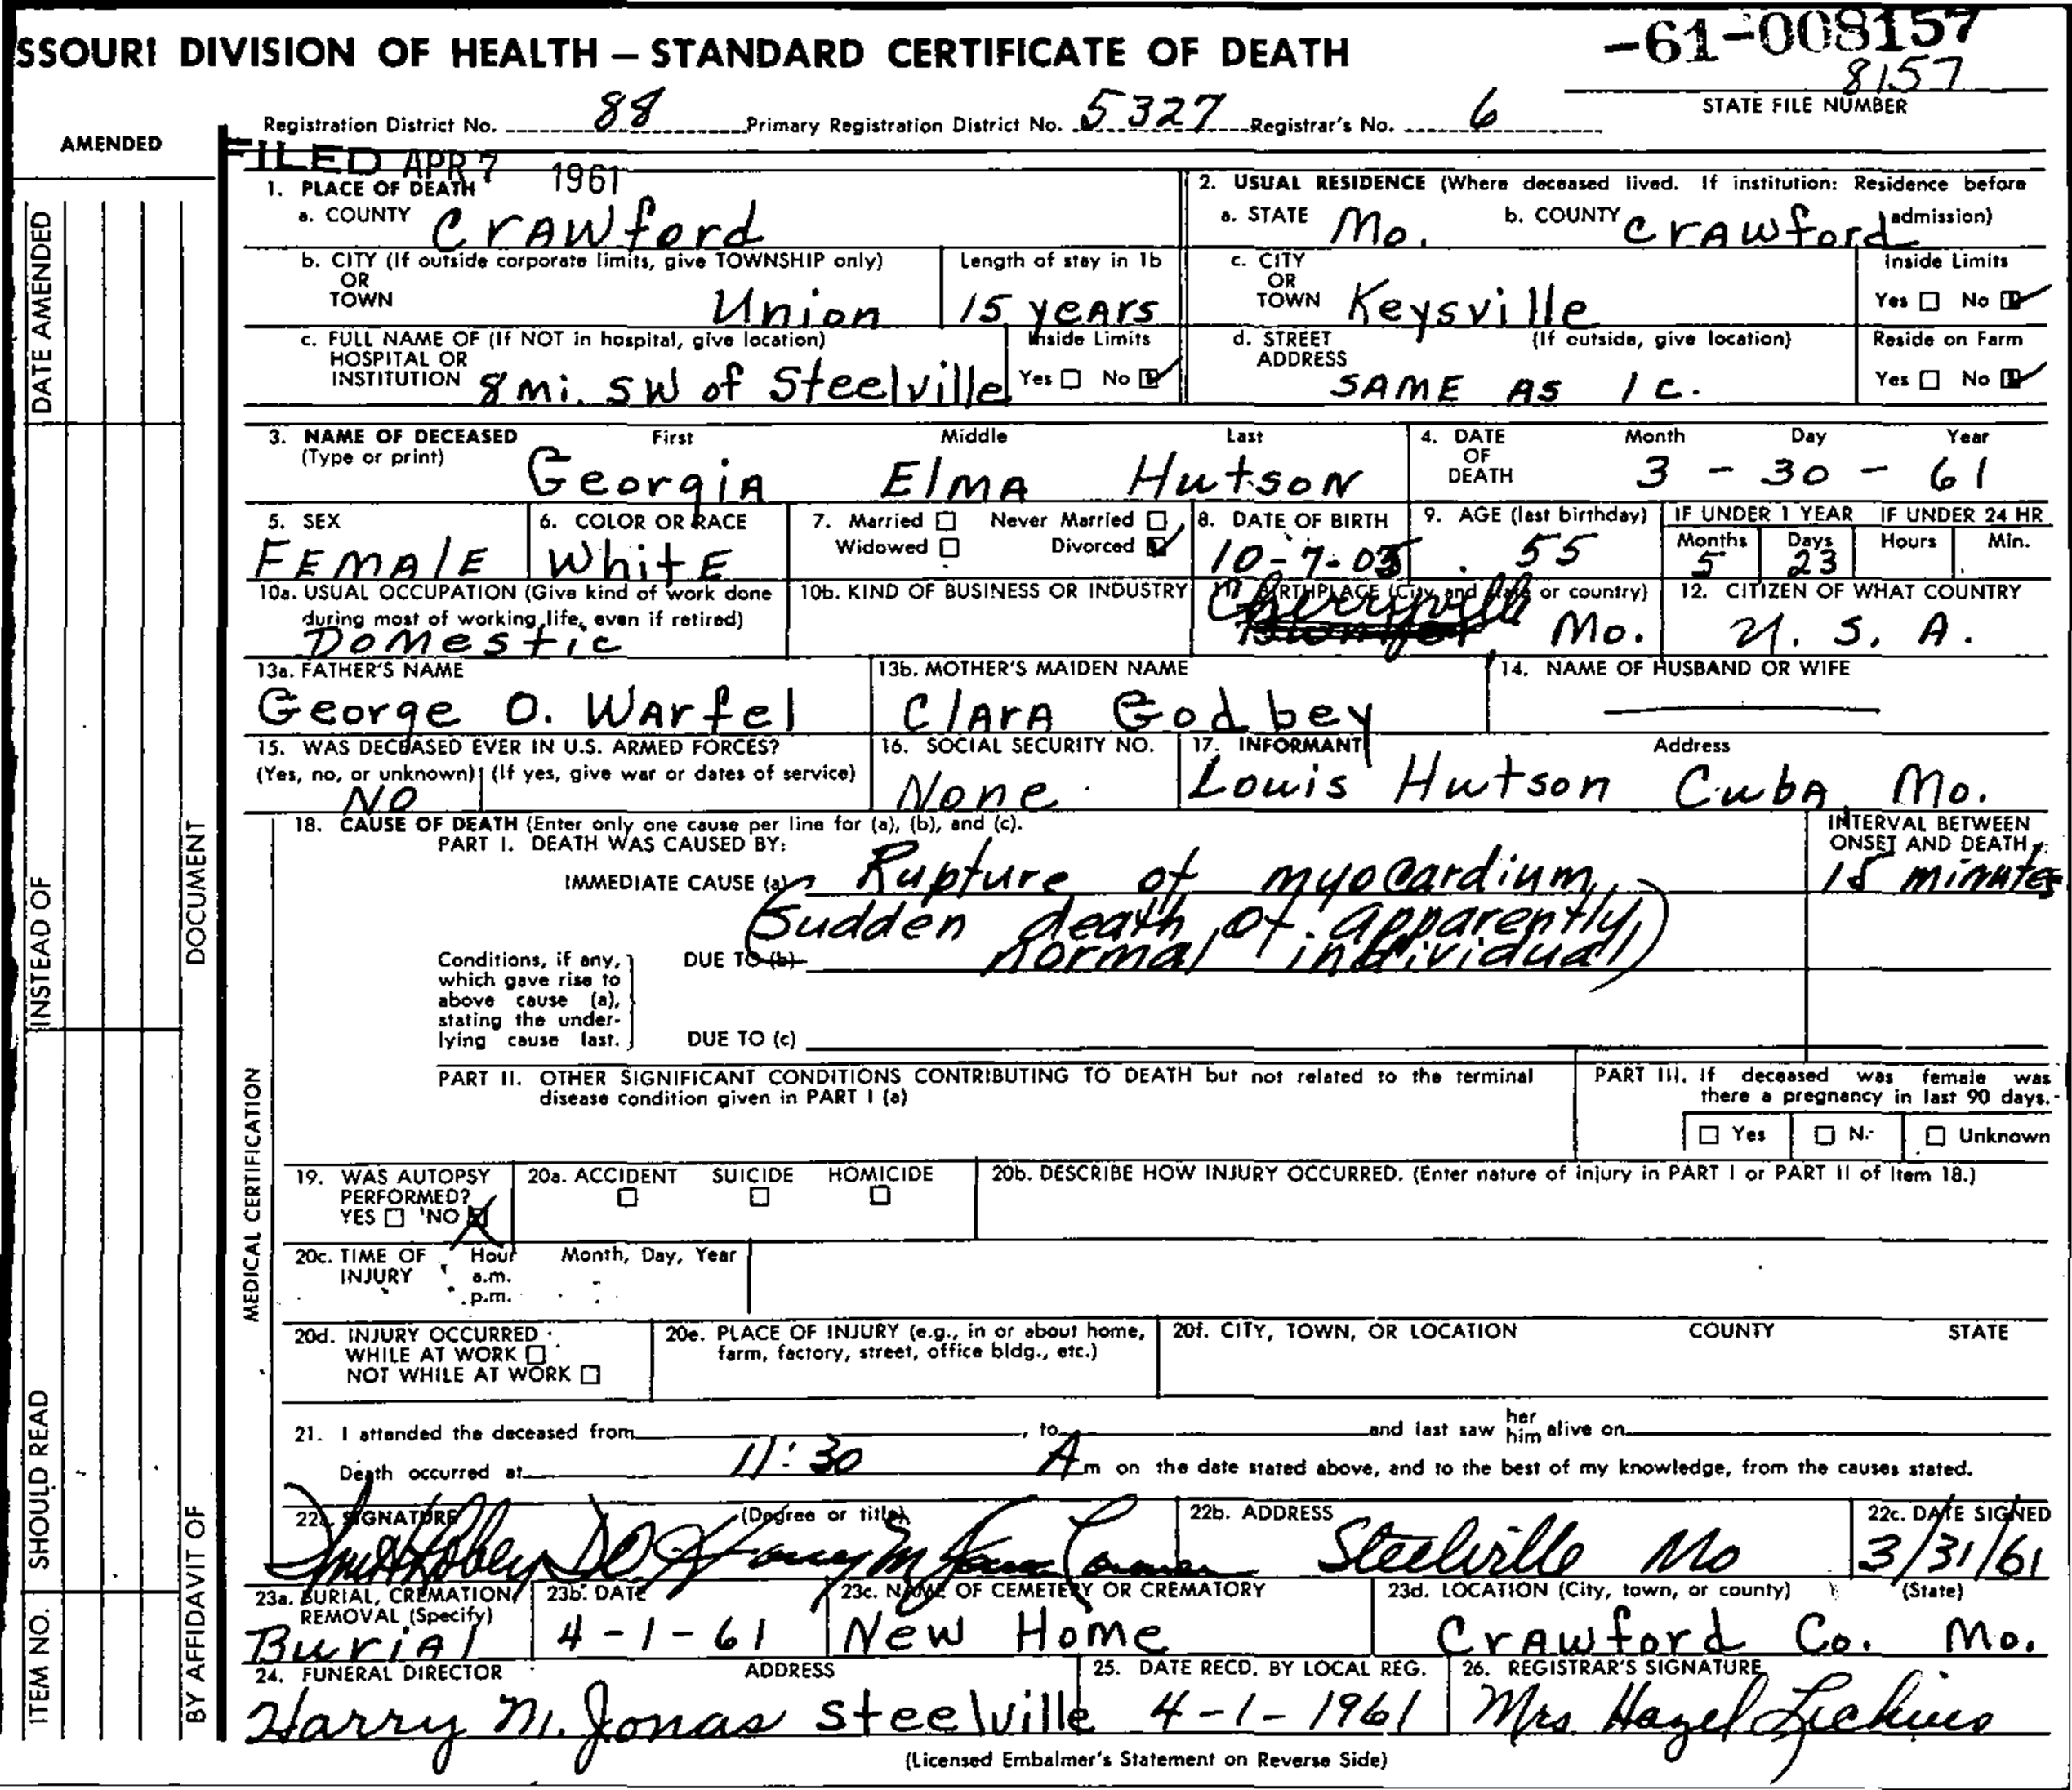 SSOURI DIVISION OF HEALTH — STANDARD CERTIFICATE OF DEATH
-61-008157
8157
STATE FILE NUMBER
Registration District No. 88 Primary Registration District No. 5327 Registrar's No. 6
AMENDED
FILED APR 7 1961
1. PLACE OF DEATH
a. COUNTY Crawford
2. USUAL RESIDENCE (Where deceased lived. If institution: Residence before admission)
a. STATE Mo. b. COUNTY Crawford
b. CITY (If outside corporate limits, give TOWNSHIP only)
OR
TOWN Union
Length of stay in 1b
15 years
c. CITY
OR
TOWN Keysville
Inside Limits
Yes ☐ No ☑
c. FULL NAME OF (If NOT in hospital, give location)
HOSPITAL OR
INSTITUTION 8 mi. SW of Steelville
Inside Limits
Yes ☐ No ☑
d. STREET (If outside, give location)
ADDRESS
SAME AS 1c.
Reside on Farm
Yes ☐ No ☑
3. NAME OF DECEASED First Middle Last
(Type or print)
Georgia Elma Hutson
4. DATE OF DEATH Month Day Year
3 - 30 - 61
5. SEX
FEMAlE
6. COLOR OR RACE
WhitE
7. Married ☐ Never Married ☐
Widowed ☐ Divorced ☑
8. DATE OF BIRTH
10-7-05
9. AGE (last birthday)
55
IF UNDER 1 YEAR IF UNDER 24 HR
Months Days Hours Min.
5 23
10a. USUAL OCCUPATION (Give kind of work done
during most of working life, even if retired)
Domestic
10b. KIND OF BUSINESS OR INDUSTRY
11. BIRTHPLACE (City and state or country)
Cherryville Mo.
12. CITIZEN OF WHAT COUNTRY
U. S. A.
13a. FATHER'S NAME
George O. Warfel
13b. MOTHER'S MAIDEN NAME
Clara Godbey
14. NAME OF HUSBAND OR WIFE
15. WAS DECEASED EVER IN U.S. ARMED FORCES?
(Yes, no, or unknown) (If yes, give war or dates of service)
NO
16. SOCIAL SECURITY NO.
None
17. INFORMANT Address
Louis Hutson Cuba, Mo.
18. CAUSE OF DEATH (Enter only one cause per line for (a), (b), and (c).
PART I. DEATH WAS CAUSED BY:
INTERVAL BETWEEN
ONSET AND DEATH
IMMEDIATE CAUSE (a) Rupture of myocardium, 15 minutes
(Sudden death of apparently
normal individual)
Conditions, if any,
which gave rise to
above cause (a),
stating the under-
lying cause last.
DUE TO (b)
DUE TO (c)
PART II. OTHER SIGNIFICANT CONDITIONS CONTRIBUTING TO DEATH but not related to the terminal
disease condition given in PART I (a)
PART III. If deceased was female was
there a pregnancy in last 90 days.
☐ Yes ☐ N. ☐ Unknown
19. WAS AUTOPSY
PERFORMED?
YES ☐ NO ☒
20a. ACCIDENT SUICIDE HOMICIDE
☐ ☐ ☐
20b. DESCRIBE HOW INJURY OCCURRED. (Enter nature of injury in PART I or PART II of Item 18.)
20c. TIME OF Hour Month, Day, Year
INJURY a.m.
p.m.
20d. INJURY OCCURRED
WHILE AT WORK ☐
NOT WHILE AT WORK ☐
20e. PLACE OF INJURY (e.g., in or about home,
farm, factory, street, office bldg., etc.)
20f. CITY, TOWN, OR LOCATION COUNTY STATE
21. I attended the deceased from , to and last saw her him alive on
Death occurred at 11:30 A m on the date stated above, and to the best of my knowledge, from the causes stated.
22a. SIGNATURE (Degree or title)
22b. ADDRESS
Steelville Mo
22c. DATE SIGNED
3/31/61
23a. BURIAL, CREMATION,
REMOVAL (Specify)
Burial
23b. DATE
4-1-61
23c. NAME OF CEMETERY OR CREMATORY
New Home
23d. LOCATION (City, town, or county) (State)
Crawford Co. Mo.
24. FUNERAL DIRECTOR ADDRESS
Harry M. Jonas Steelville
25. DATE RECD. BY LOCAL REG.
4-1-1961
26. REGISTRAR'S SIGNATURE
Mrs Hazel
(Licensed Embalmer's Statement on Reverse Side)
DATE AMENDED
INSTEAD OF
DOCUMENT
MEDICAL CERTIFICATION
SHOULD READ
ITEM NO.
BY AFFIDAVIT OF